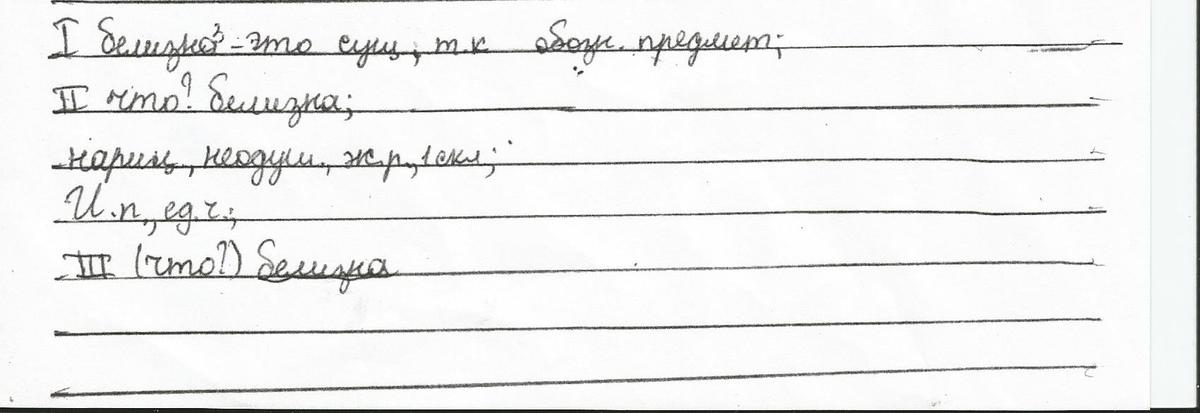 I белизна³ - это сущ, т.к обозн. предмет;
II что? белизна;
нариц, неодуш., ж.р., 1 скл;
И.п., ед.ч.;
III (что?) белизна